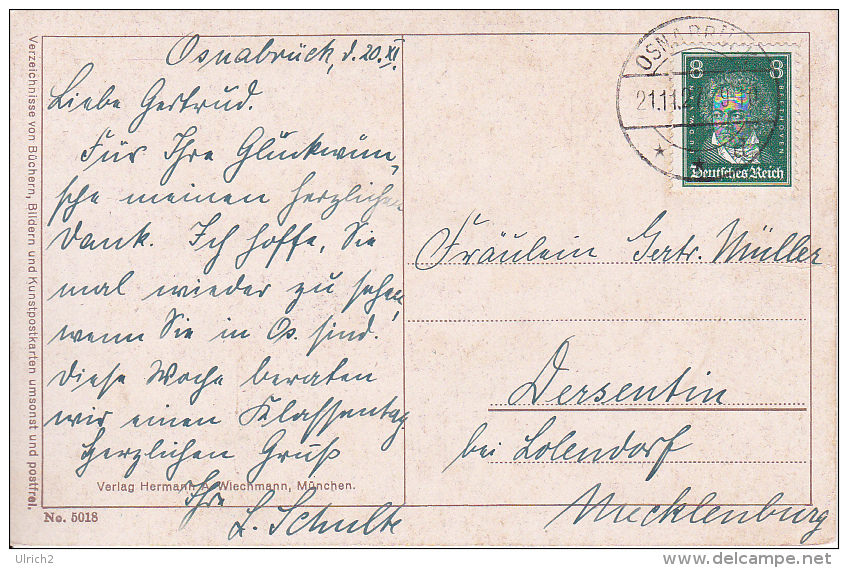 Osnabrück, d. 20. XI.
Liebe Gertrud.
Für Ihre Glückwün-
sche meinen herzlichen
Dank. Ich hoffe, Sie
mal wieder zu sehen,
wenn Sie in Os. sind!
Diese Woche beraten
wir einen Klassentag.
Herzlichen Gruß
Ihre
L. Schulte
Verlag Hermann A. Wiechmann, München.
No. 5018
Verzeichnisse von Büchern, Bildern und Kunstpostkarten umsonst und postfrei.
OSNABRÜCK
21.11.27
8 8
Deutsches Reich
Fräulein Gertr. Müller
Dersentin
bei Lolendorf
Mecklenburg
Ulrich2
delcampe.net